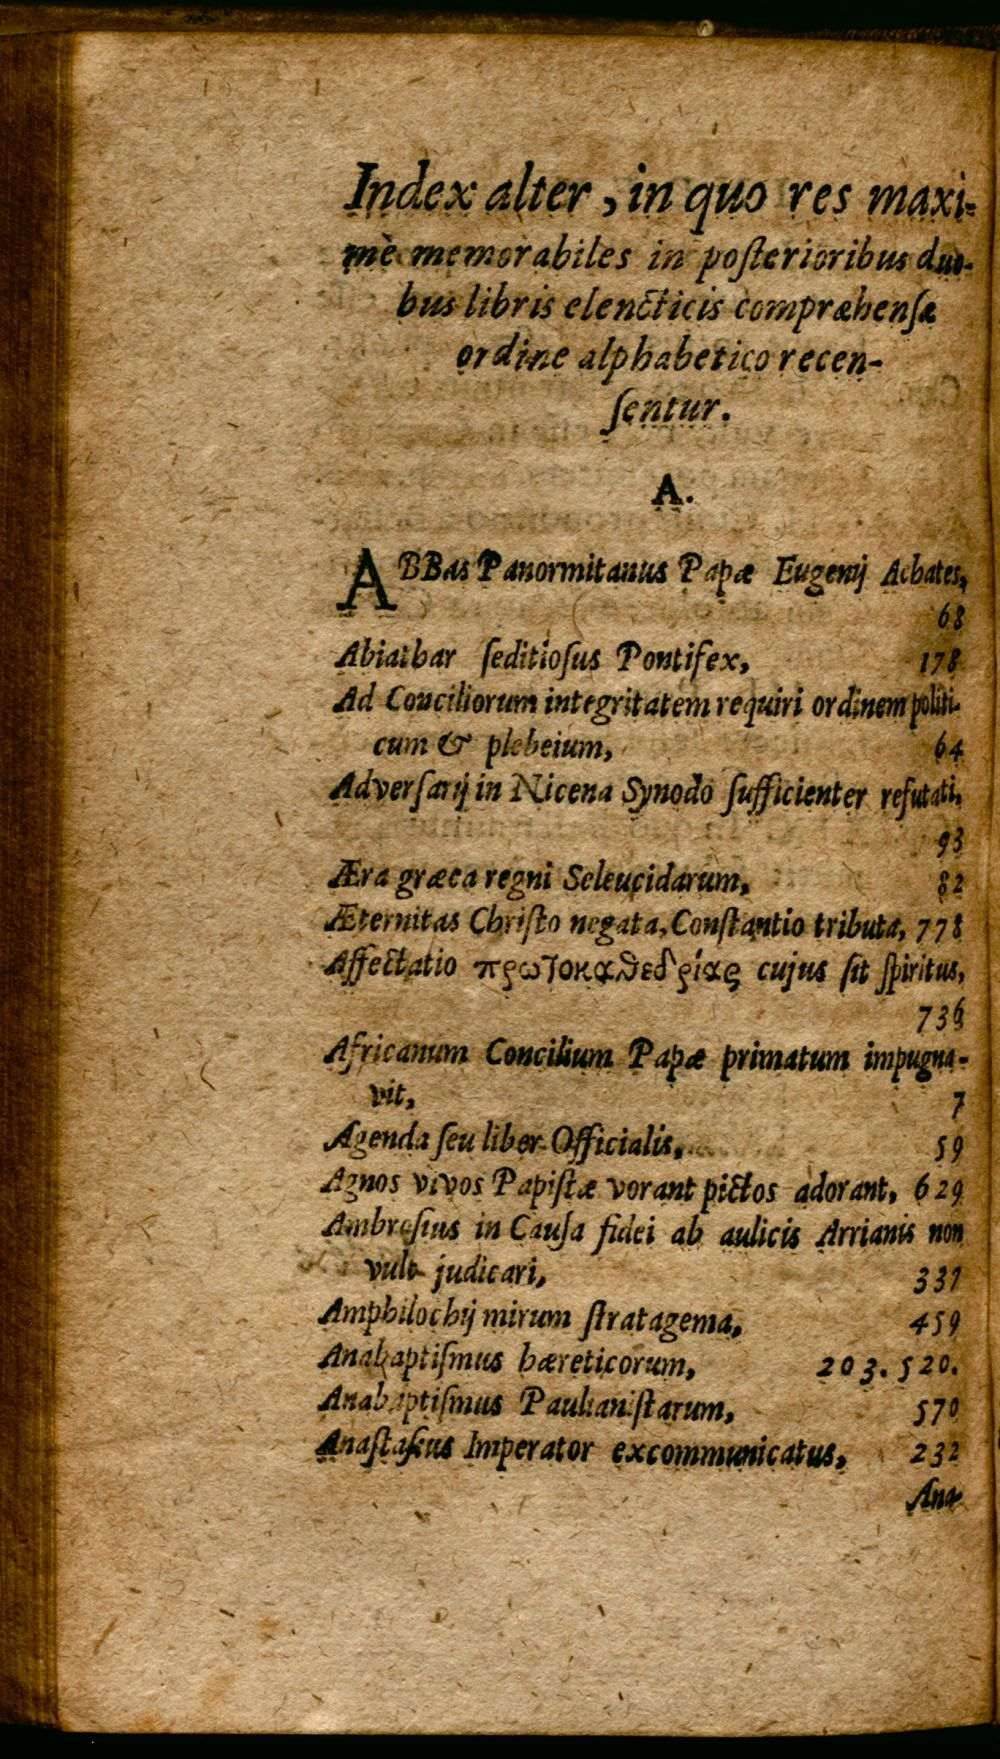 Index alter, in quo res maxi-
mè memorabiles in poſterioribus duo-
bus libris elencticis compræhenſæ
ordine alphabetico recen-
ſentur.
A.
ABBas Panormitanus Papæ Eugenij Achates,
68
Abiathar ſeditioſus Pontifex, 178
Ad Conciliorum integritatem requiri ordinem politi-
cum & plebeium, 64
Adverſarij in Nicena Synodo ſufficienter refutati,
93
Æra græca regni Seleucidarum, 82
Æternitas Chriſto negata, Conſtantio tributa, 778
Affectatio πρωτοκαθεδρίας cujus ſit ſpiritus,
736
Africanum Concilium Papæ primatum impugna-
vit, 7
Agenda ſeu liber Officialis, 59
Agnos vivos Papiſtæ vorant pictos adorant, 629
Ambroſius in Cauſa fidei ab aulicis Arrianis non
vult judicari, 337
Amphilochij mirum ſtratagema, 459
Anabaptiſmus hæreticorum, 203. 520.
Anabaptiſmus Paulianiſtarum, 570
Anaſtaſius Imperator excommunicatus, 232
Ana-